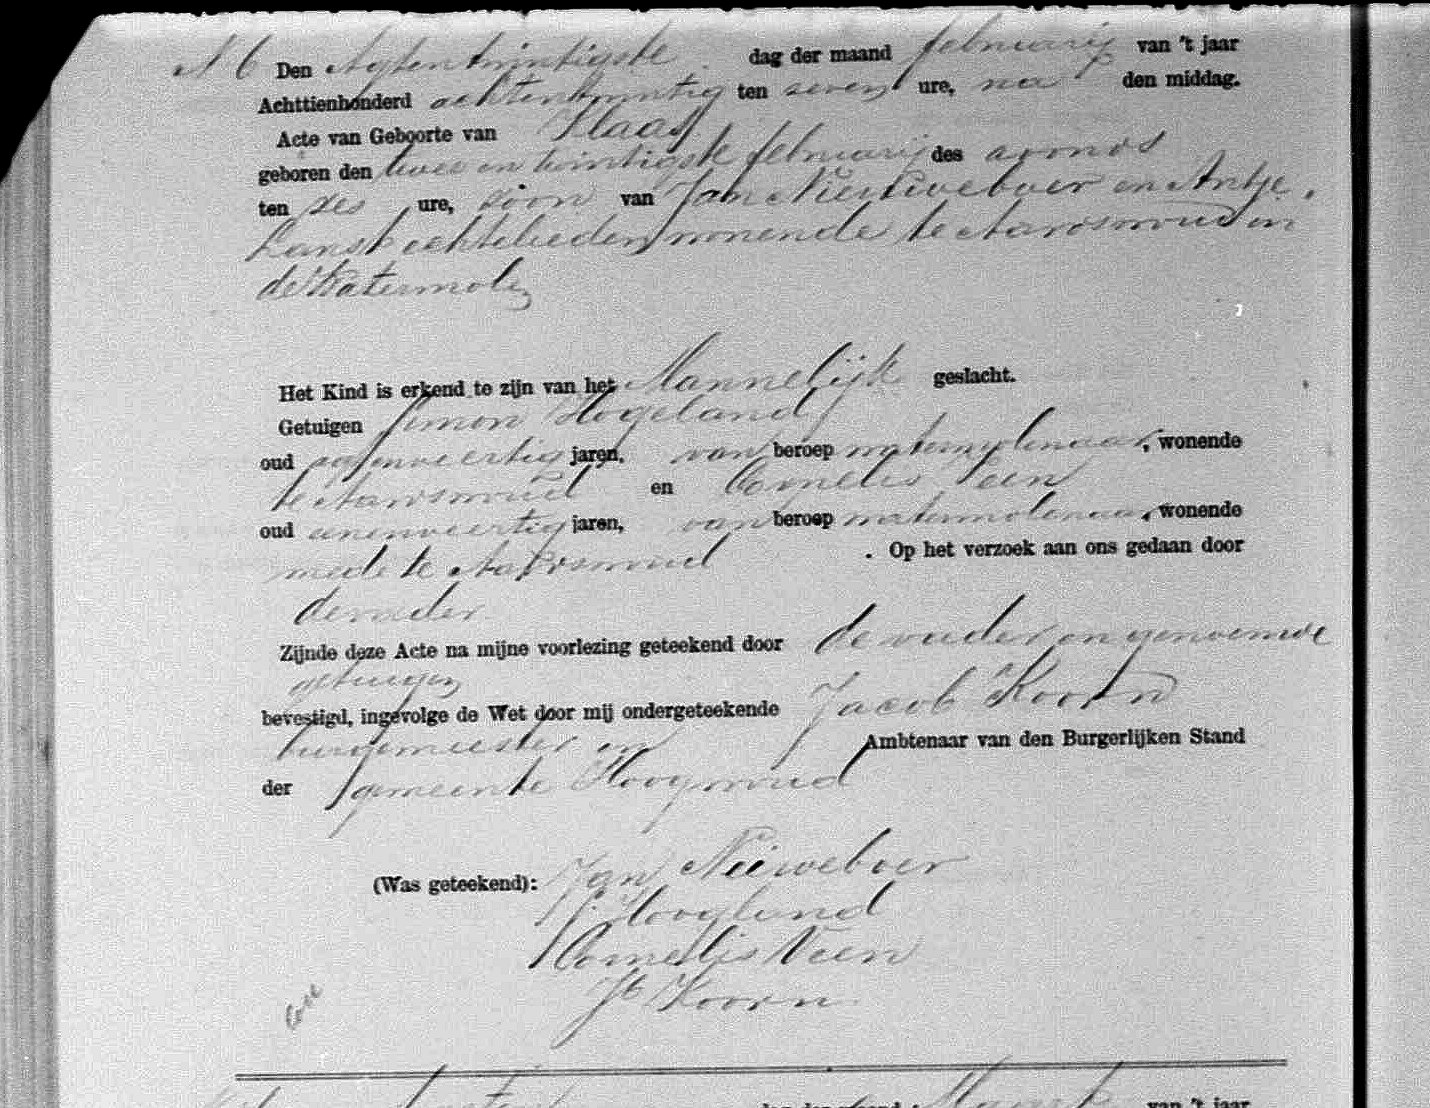 N 6 Den Agtentwintigste dag der maand februarij van 't jaar
Achttienhonderd achtentwintig ten seven ure, na den middag.
Acte van Geboorte van Klaas
geboren den twee en twintigste februarij des avonds
ten ses ure, zoon van Jan Nieuweboer en Antje
Lanser echtelieden wonende te Aartswoud in
de Watermolen
Het Kind is erkend te zijn van het Mannelijk geslacht.
Getuigen Simon Hogeland
oud jaren, van beroep watermolenaar, wonende
te Aartswoud en Cornelis Veen
oud eenenveertig jaren, van beroep watermolenaar, wonende
mede te Aartswoud . Op het verzoek aan ons gedaan door
de vader
Zijnde deze Acte na mijne voorlezing geteekend door de vader en genoemde
getuigen
bevestigd, ingevolge de Wet door mij ondergeteekende Jacob Koorn
burgemeester en Ambtenaar van den Burgerlijken Stand
der gemeente Hoogwoud
(Was geteekend): Jan Nieiweboer
S. Hoogland
Cornelis Veen
Jb Koorn
van 't jaar